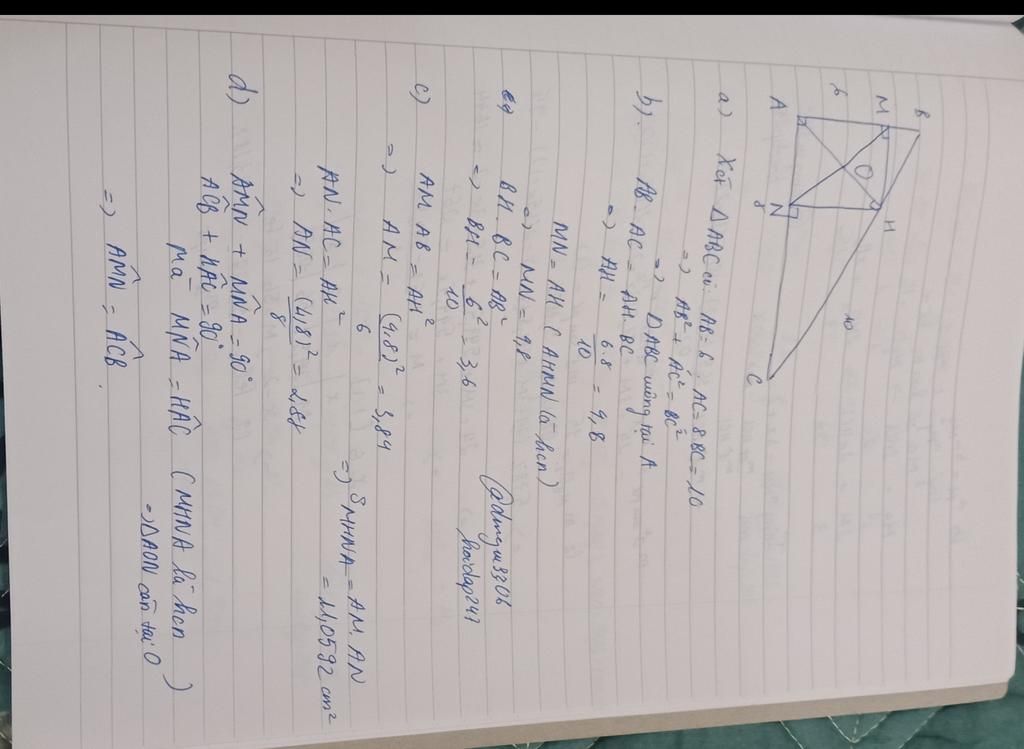 B
M
H
6
O
10
A
N
8
C
a) Xét ΔABC có: AB = 6, AC = 8 BC = 10
=> AB² + AC² = BC²
=> ΔABC vuông tại A
b). AB. AC = AH. BC
=> AH = 6.8/10 = 4,8
MN = AH ( AHMN là hcn)
=> MN = 4,8
BH. BC = AB²
=> BH = 6²/10 = 3,6
@dnguu3306
hoidap247
c) AM. AB = AH²
=> AM = (4,8)²/6 = 3,84
AN. AC = AH²
=> AN = (4,8)²/8 = 2,88
=> SMHNA = AM. AN
= 11,0592 cm²
d) AMN + MNA = 90°
ACB + HAC = 90°
mà MNA = HAC ( MHNA là hcn )
=> ΔAON cân tại O
=> AMN = ACB.